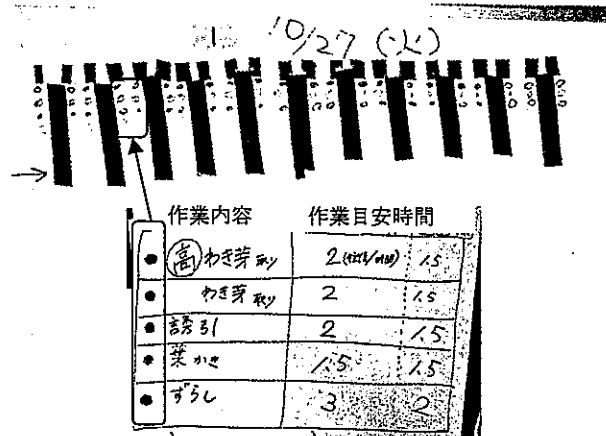 10/27 (火)
作業内容 作業目安時間
高 わき芽取り 2 1.5
わき芽取り 2 1.5
誘引 2 1.5
葉かき 1.5 1.5
ずらし 3 2